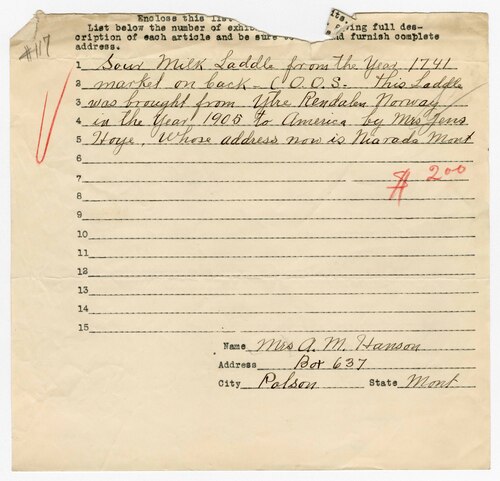 #117
Enclose this list
its.
List below the number of exhib ving full des-
cription of each article and be sure to d furnish complete
address.
1 Sour Milk Laddle from the Year 1741
2 market on back - C.O.O.S. This Laddle
3 was brought from Ytre Rendalen Norway
4 in the Year 1905 to America by Mrs Jens
5 Hoye, Whose address now is Niarada Mont
6
7 # 2.00
8
9
10
11
12
13
14
15
Name Mrs A. M. Hanson
Address Box 637
City Polson State Mont